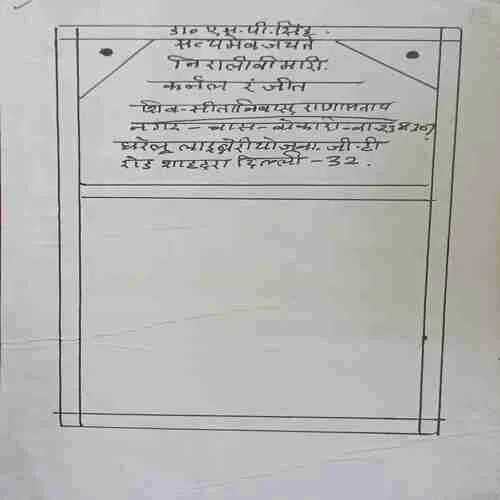 डा० एस.पी.सिंह.
सत्यमेव जयते
निरालीबीमारी.
कर्नल रंजीत
शिव-सीतानिवास, राणाप्रताप
नगर - चास - बोकारो -
घरेलू लाइब्रेरीयोजना. जी.टी
रोड शाहदरा दिल्ली - 32.